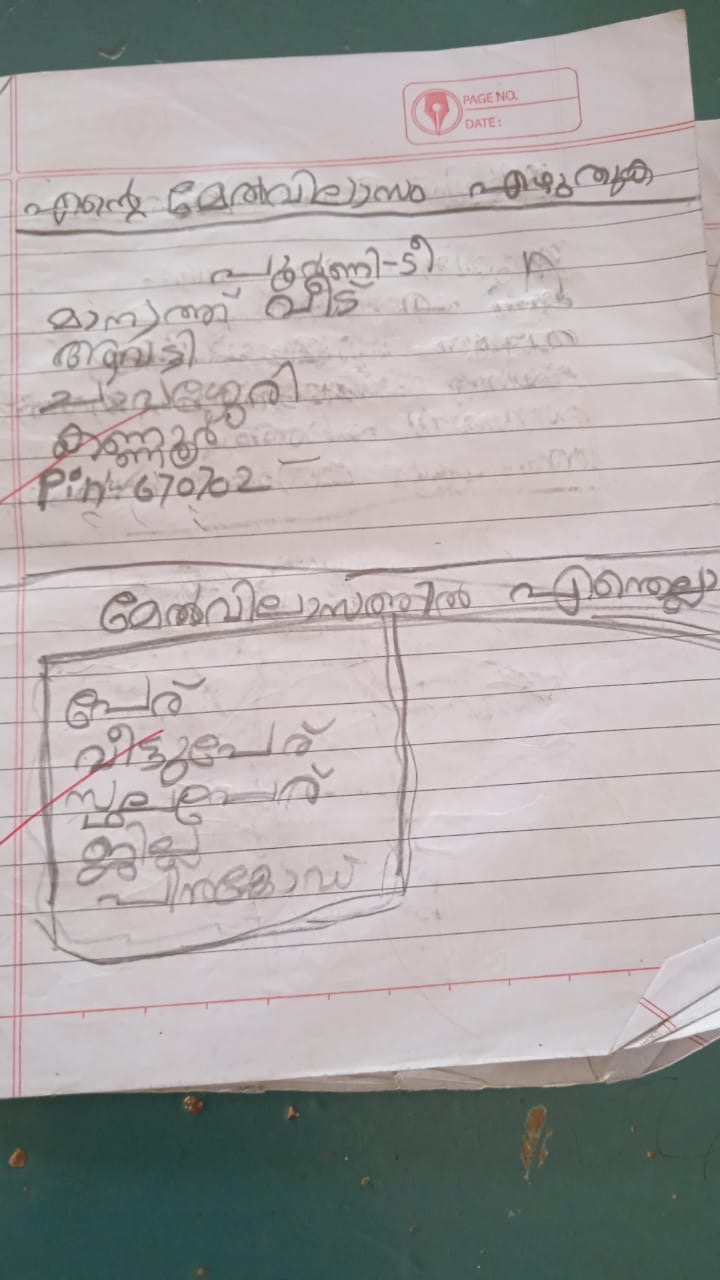 PAGE NO.
DATE:
എന്റെ മേൽവിലാസം എഴുതുക
മാന്യത്ത് വീട്
ആവട്ടി
ചാവശ്ശേരി
കണ്ണൂർ
Pin: 670702
മേൽവിലാസത്തിൽ എന്തെല്ലാ
പേര്
വീട്ടുപേര്
സ്ഥലപേര്
ജില്ല
പിൻകോഡ്